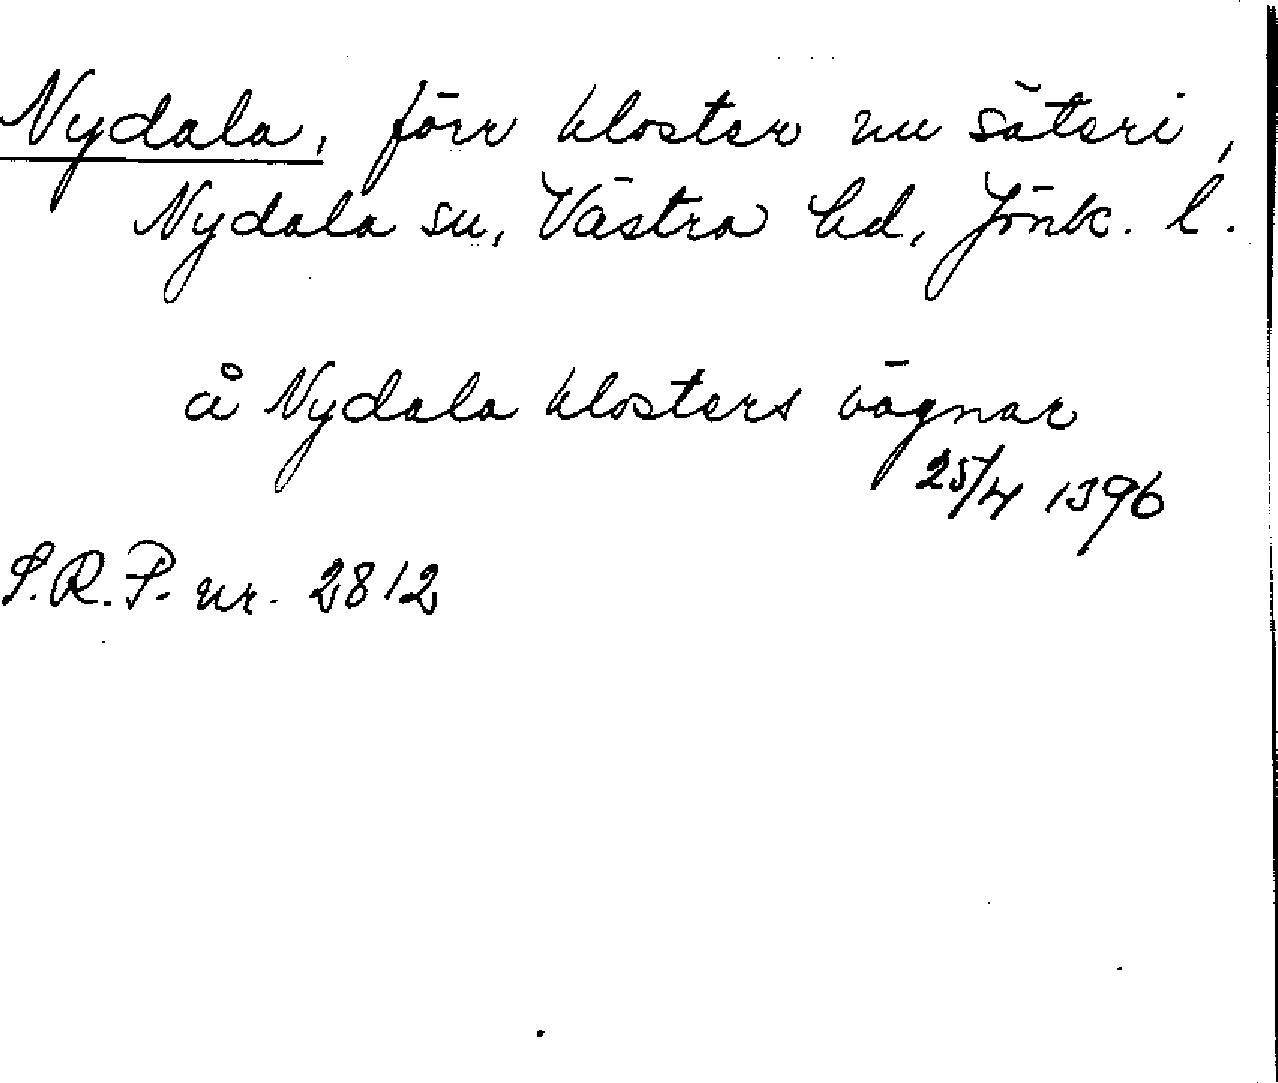 Nydala, förr kloster nu säteri,
Nydala sn, Västra hd, Jönk. l.
å Nydala klosters vägnar
25/4 1396
S.R.P. nr. 2812